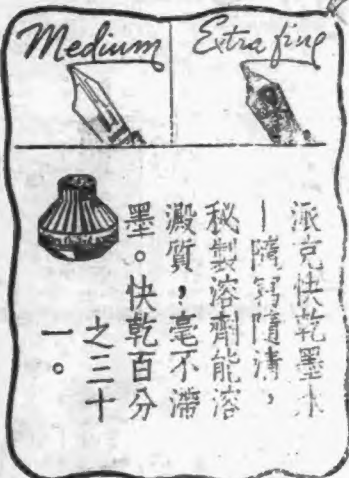 Medium
Extra fine
派克快乾墨水
—隨寫隨清,
秘製溶劑能溶
澱質,毫不滯
墨。快乾百分
之三十
一。